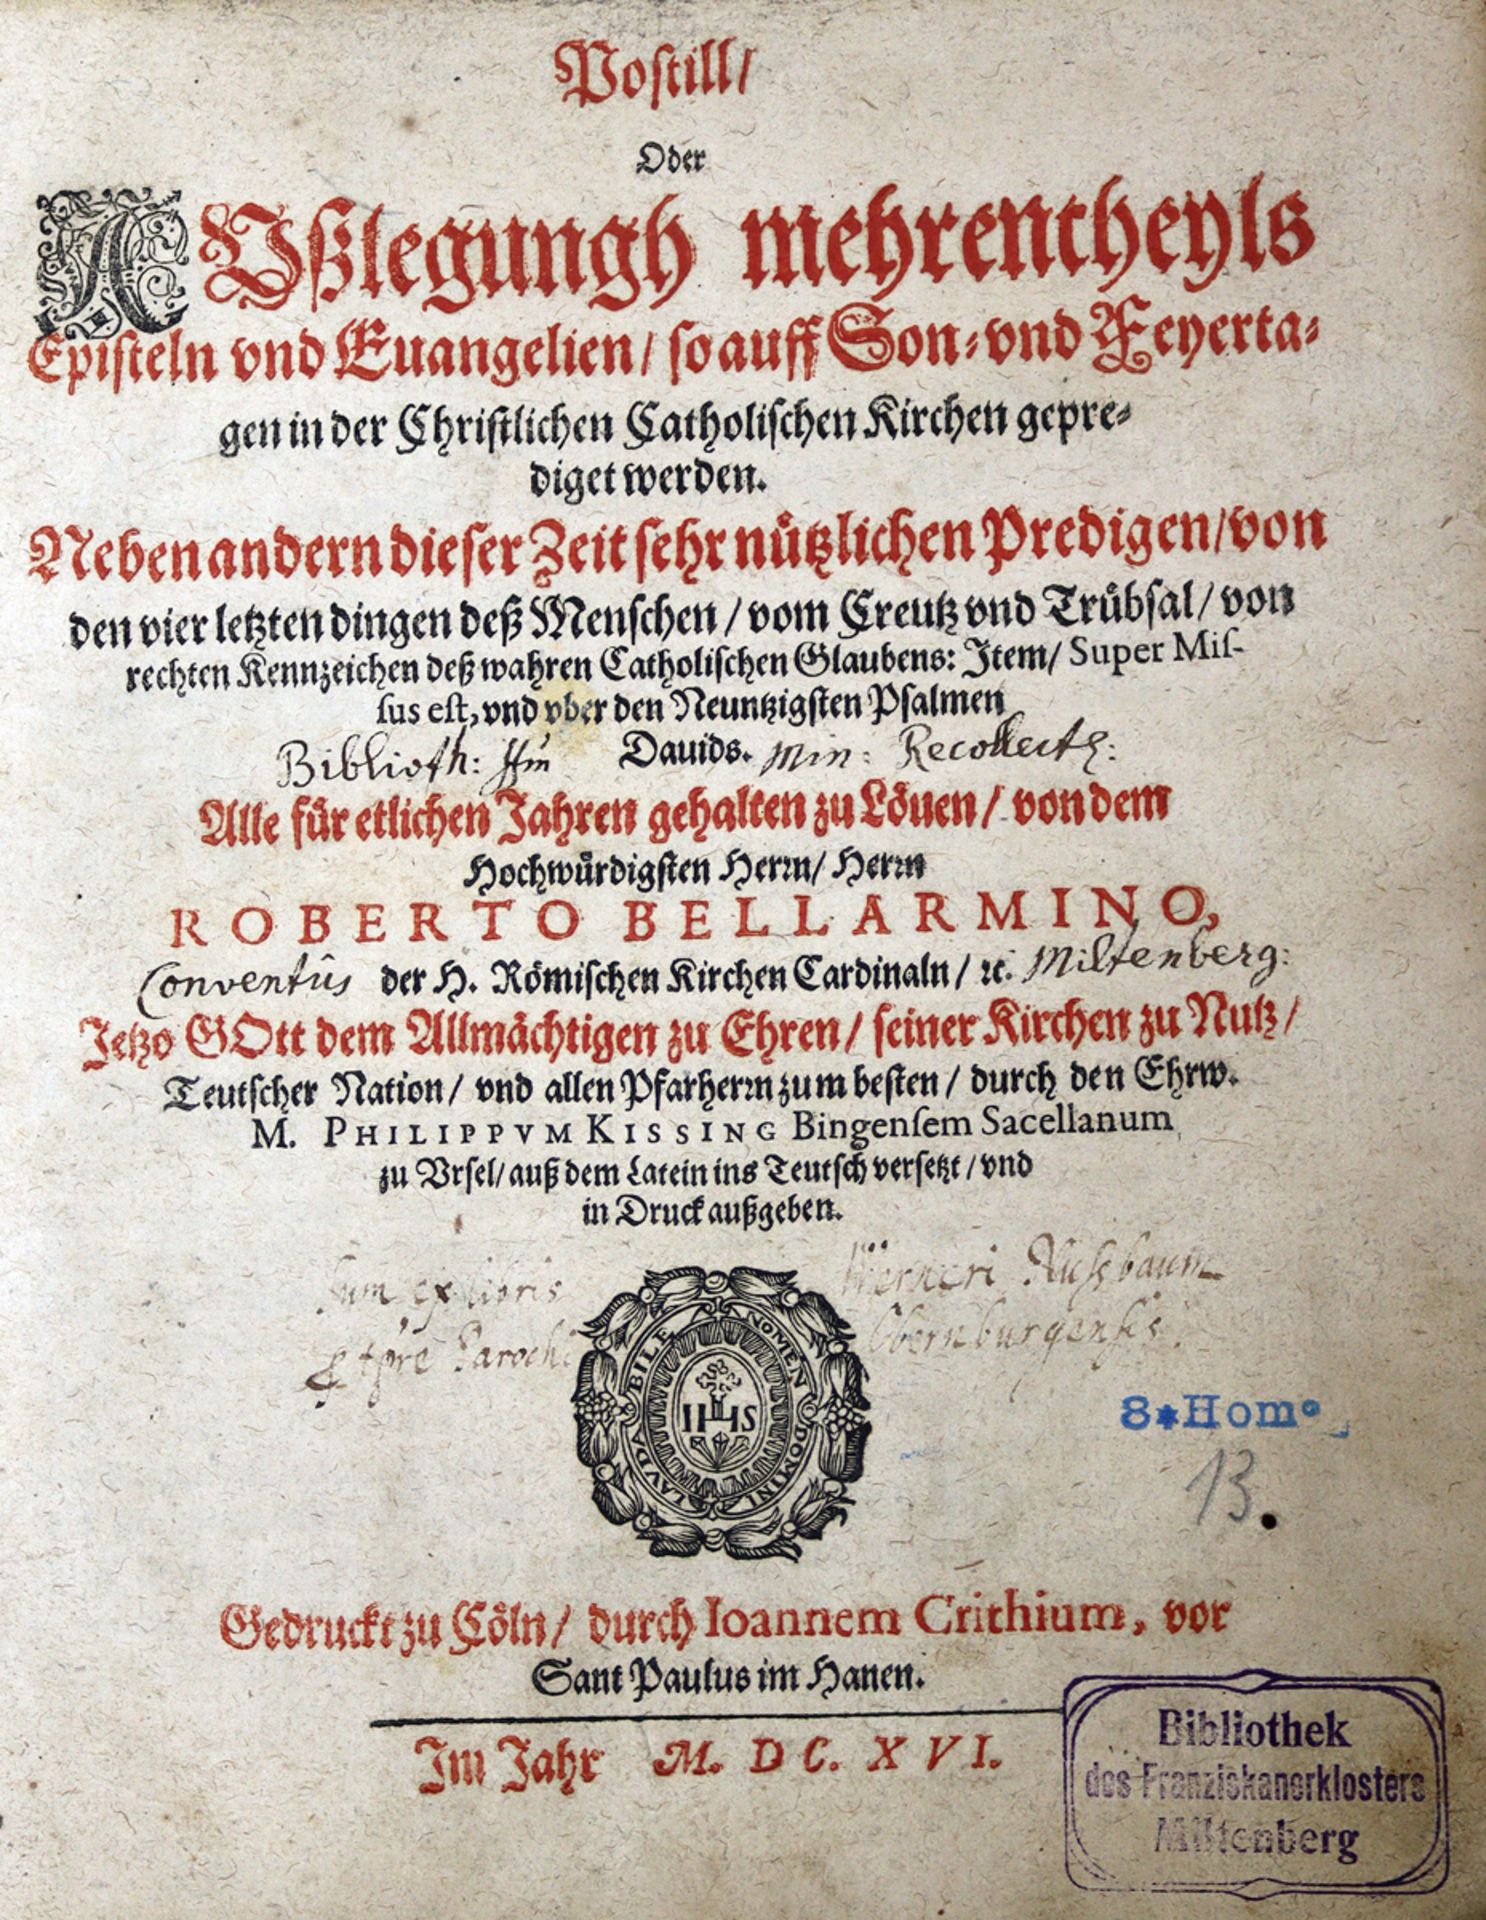 Postill/
Oder
AVßlegungh mehrentheyls
Episteln vnd Euangelien/ so auff Son- vnd Feyerta-
gen in der Christlichen Catholischen Kirchen gepre-
diget werden.
Neben andern dieser Zeit sehr nützlichen Predigen/ von
den vier letzten dingen deß Menschen/ vom Creutz vnd Trübsal/ von
rechten Kennzeichen deß wahren Catholischen Glaubens: Item/ Super Mis-
sus est, vnd vber den Neuntzigsten Psalmen
Biblioth: Dauids. Min: Recollect:
Alle für etlichen Jahren gehalten zu Löuen/ von dem
Hochwürdigsten Herrn/ Herrn
ROBERTO BELLARMINO,
Conventûs der H. Römischen Kirchen Cardinaln/ ꝛc. Miltenberg:
Jetzo GOtt dem Allmächtigen zu Ehren/ seiner Kirchen zu Nutz/
Teutscher Nation/ vnd allen Pfarherrn zum besten/ durch den Ehrw.
M. PHILIPPVM KISSING Bingensem Sacellanum
zu Vrsel/ auß dem Latein ins Teutsch versetzt/ vnd
in Druck außgeben.
Sum ex libris Werneri Nussbaum
Parochi Obernburgensis.
LAVDABILE NOMEN DOMINI
IHS
8*Hom°
13.
Gedruckt zu Cöln/ durch Ioannem Crithium, vor
Sant Paulus im Hanen.
Im Jahr M. DC. XVI.
Bibliothek
des Franziskanerklosters
Miltenberg